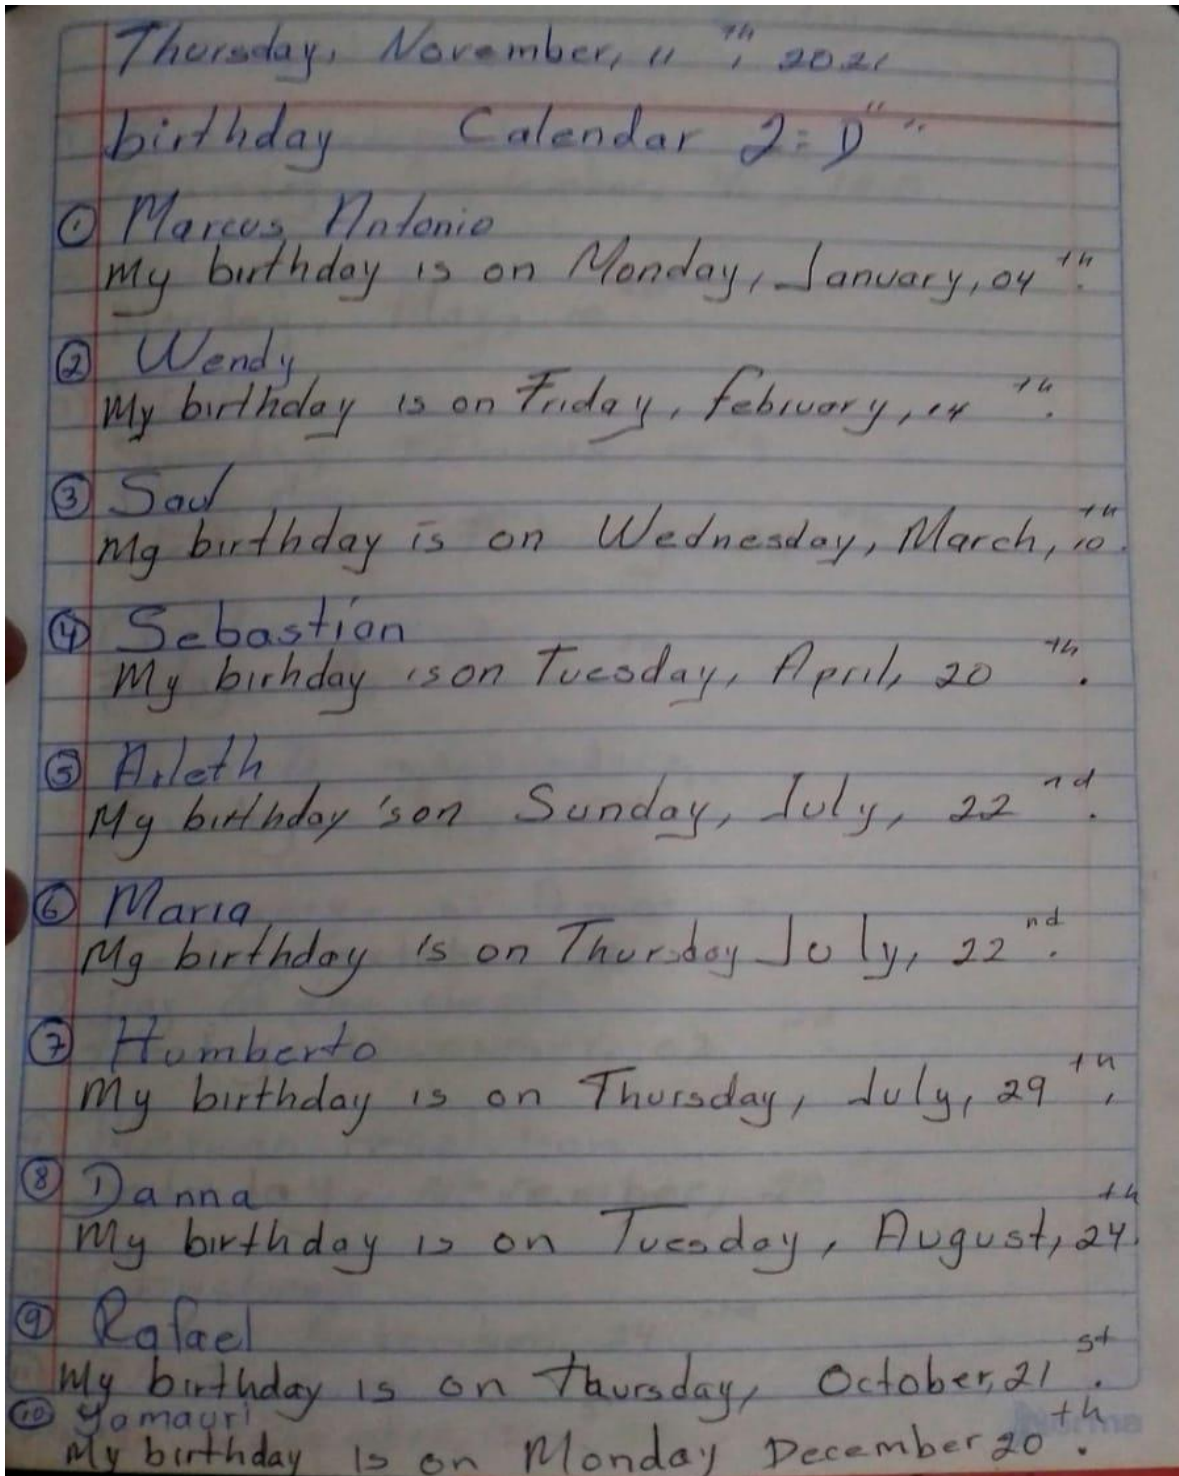 Thursday, November, 11th, 2021
birthday Calendar 2=D"
① Marcus Antonio
My birthday is on Monday, January, 04th.
② Wendy
My birthday is on Friday, february, 14th.
③ Saul
My birthday is on Wednesday, March, 10th.
④ Sebastian
My birhday is on Tuesday, April, 20th.
⑤ Arleth
My birthday 's on Sunday, July, 22nd.
⑥ Maria
My birthday is on Thursday July, 22nd.
⑦ Humberto
My birthday is on Thursday, July, 29th.
⑧ Danna
My birthday is on Tuesday, August, 24th.
⑨ Rafael
My birthday is on Thursday, October, 21st.
⑩ Yamauri
My birthday is on Monday December 20th.